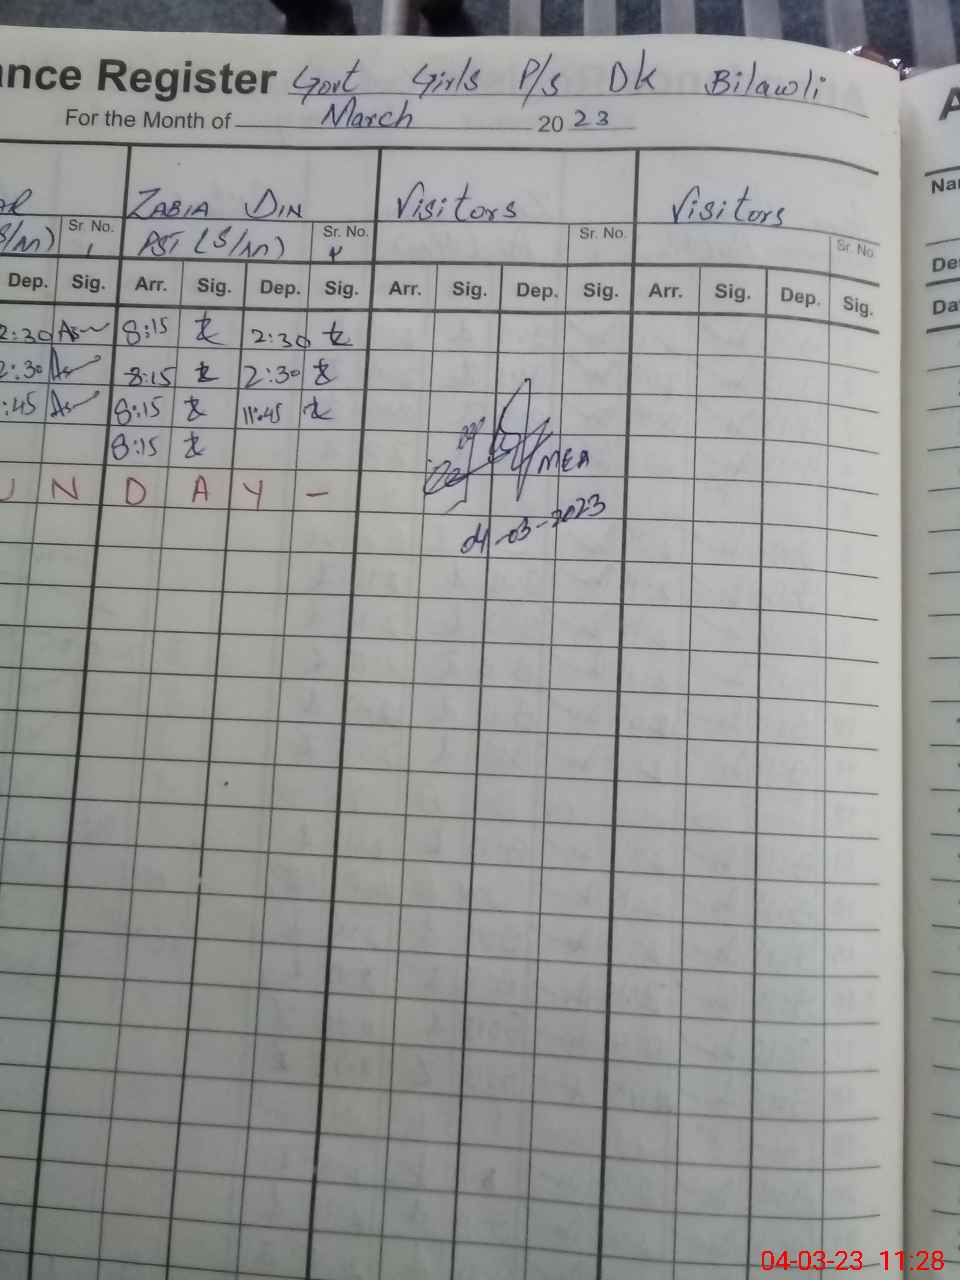 ance Register Govt Girls P/S DK Bilawli
For the Month of March 2023
AR ZABIA DIN Visitors Visitors
S/M) Sr. No. 1 PST (S/M) Sr. No. Sr. No. Sr. No.
Dep. Sig. Arr. Sig. Dep. Sig. Arr. Sig. Dep. Sig. Arr. Sig. Dep. Sig.
2:30 8:15 2:30
2:30 8:15 2:30
:45 8:15 11:45
8:15
UNDAY -
MEA
04-03-2023
A
Na
De
Da
04-03-23 11:28